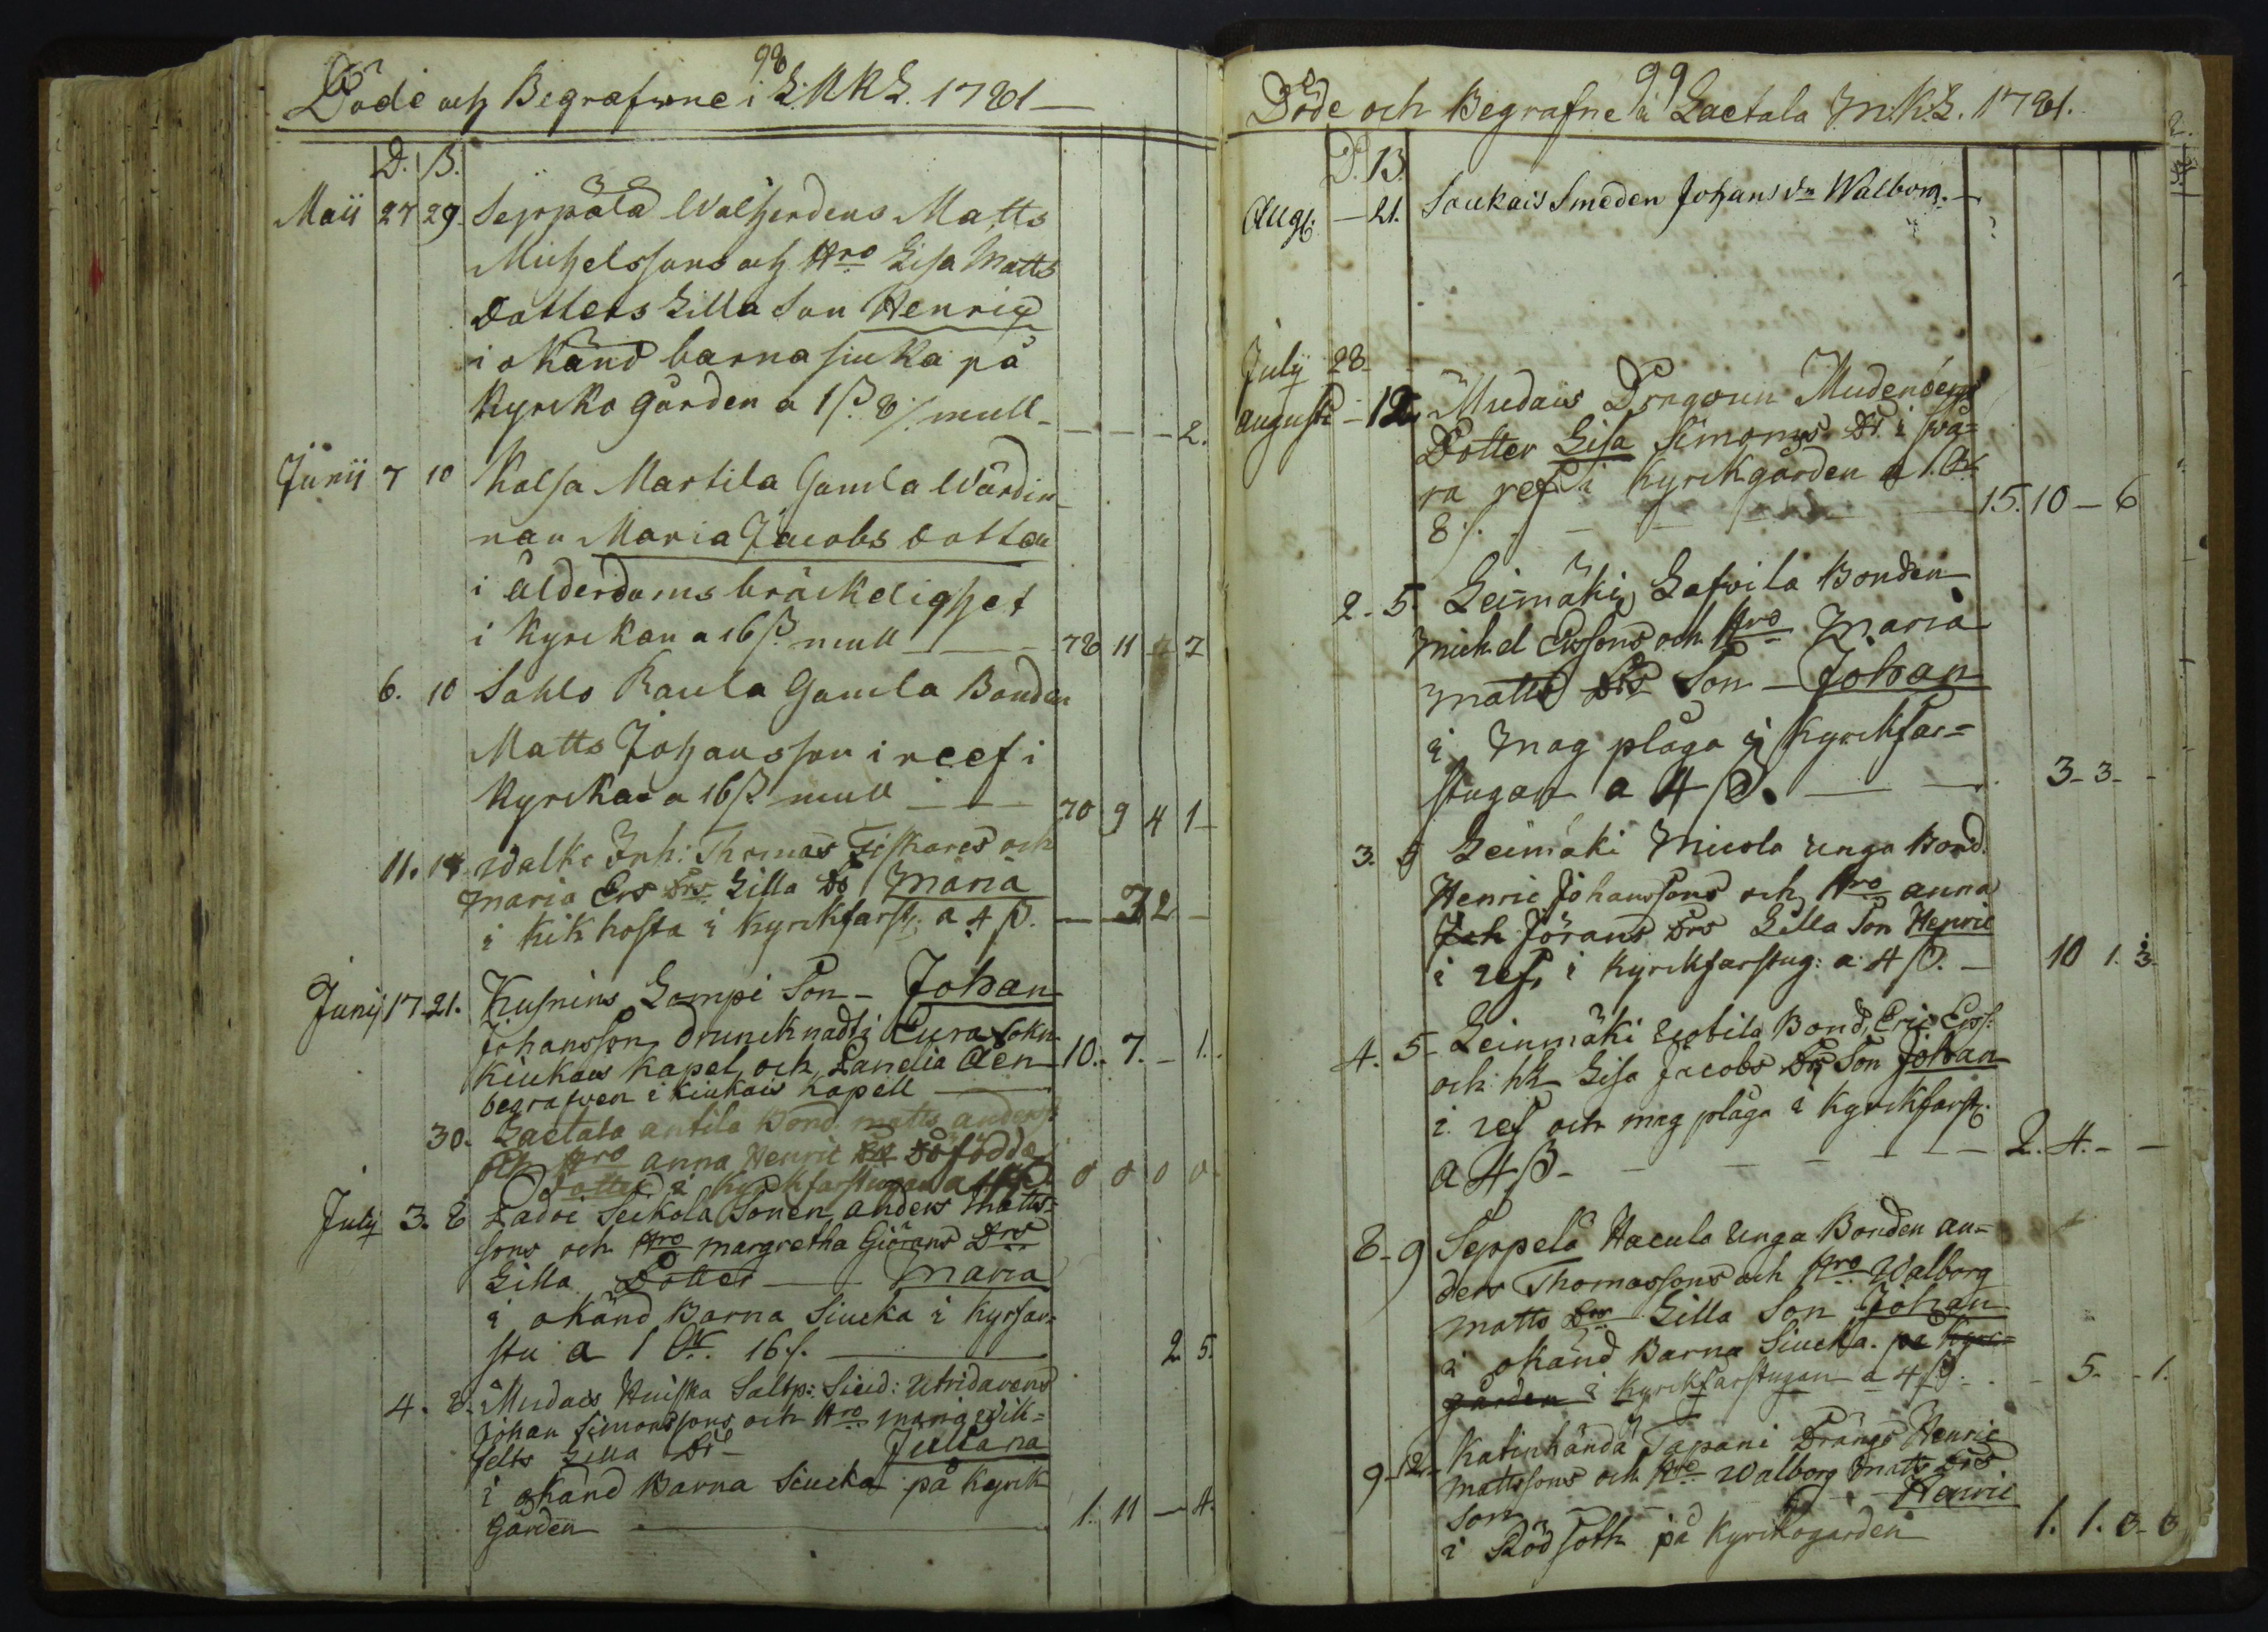 98
Döde och Begrafwne i L.M.K.L. 1781
D. B.
Maii 27 29. Seppälä Walherdens Matts
Michelssons och Hro Lisa Matts
Dotters Lilla Son Henric
i okänd barna siuka på
Kyrko gården a 1 ß. 8 ./. mull - - - - 2.
Junii 7 10 Kalsa Martila Gamla Wärdin
nan Maria Jacobs dotter
i ålderdoms bräckelighet
i Kyrckan a 16 ß. mull - 78 11 - 7
6. 10 Sahlo Raula Gamla Bonden
Matts Johansson i reef i
Kyrckan a 16 ß. mull - - 70 9 4 1
11. 17 Walke Inh: Thomas Fiskares och
Maria Ers Drs Lilla Dr Maria
i kik hosta i Kyrckfarst: a 4 ß. - 7 2 -
Junij 17 21. Kusnins Lampi Son - Johan
Johansson druncknadt i Eura Sokn
Kiukais Kapel och Panelia åen 10. 7. - 1.
begrafwen i Kiukais Kapell
30. Lactala antila Bond. Matts anderss:
och Hro anna Henric Dödfödda
Dotter i Kyrckfarstugan a 4 ß 0 0 0 0
July 3. 8 Ladoi Seikola Sonen anders Matts=
sons och Hro Margretha Giörans Drs
Lilla Dotter - Maria
i okänd Barna Siucka i Kyrfar=
stu a 1 16./. - 2. 5.
4. 8. Mudais Huiska Saltp: Siud: Utridarens
Johan Simonssons och Hro maria
felts Lilla Dr - Juliana
i okänd Barna Siucka på Kyrck
Gården - 1. 11 - 4.
99
Döde och Begrafne i Lactala M.K.L. 1781.
D. B.
Aug. - 21. Saukais Smeden Johans dr Walborg. -
July 28
Augusti - 12. Mudais Dragoun Mudenbergs
Dotter Lisa Simons Dr. i swå=
ra ref i Kyrckgården a 1.
8 ./. - - - 15. 10 - 6
2. 5. Leimäki Lafwila Bonden
Michel Erssons och Hro Maria
Matts Drs Son - Johan
i Mag plåga i Kyrckfar=
stugan a 4 ß. - 3 - 3 - -
3. 5 Leimäki Micola unga Bond.
Henric Johanssons och Hro anna
Joh Jörans Drs Lilla Son Henric
i ref, i Kyrckfarstug: a 4 ß. - 10 1. 3.
4. 5 - Leinmäki Uotila Bond, Eric Erss:
och Lisa Jacobs Drs Son Johan
i ref och mag plåga i Kyrckfarst.
a 4 ß - - - - - 2. 4. - -
8 - 9 Seppelä Hacula Unga Bonden an=
ders Thomassons och Hro Walborg
Matts Drs Lilla Son Johan
i okänd Barna Siucka. på Kyrc=
gården i Kyrckfarstugan a 4 ß. - 5. - 1.
9 - 12 - Katinhändä Tapani Drängs Henric
Mattssons och Hro Walborg Matts Drs
Son - - Henric
i Rödsoth på Kyrckogården 1. 1. 0 - 0